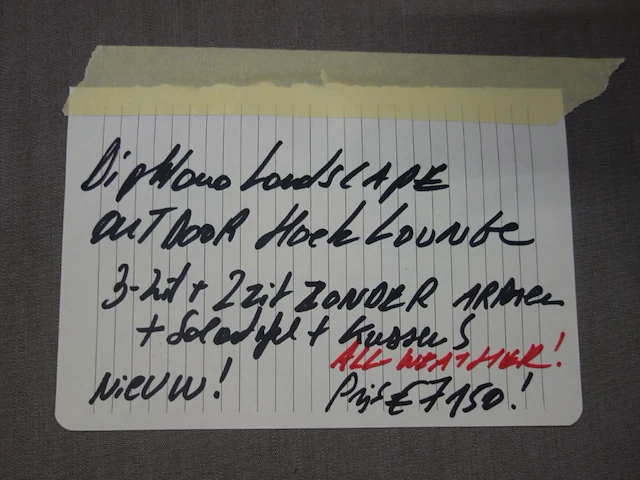 Diphano LandSCAPE
OUTDOOR Hoek LOUNGE
3-zit + 2zit ZONDER ARMEN
+ Salontafel + KussenS
ALL WEATHER!
NIEUW!
Prijs € 7150!